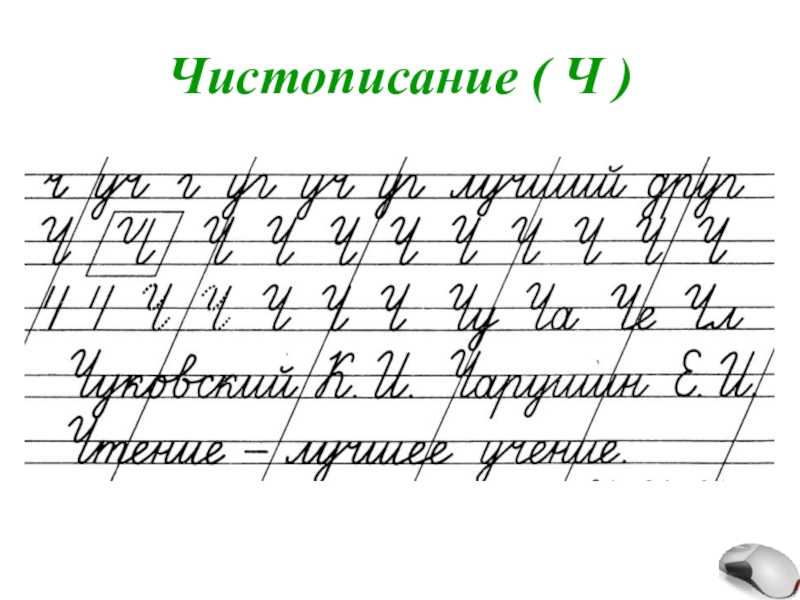 Чистописание ( Ч )
ч уч г уг уч уг лучший друг
Ч Ч Ч Ч Ч Ч Ч Ч Ч Ч Ч
Ч Ч Ч Ч Ч Ч Ч Чу Ча Че Чл
Чуковский К. И. Чарушин Е. И.
Чтение – лучшее учение.